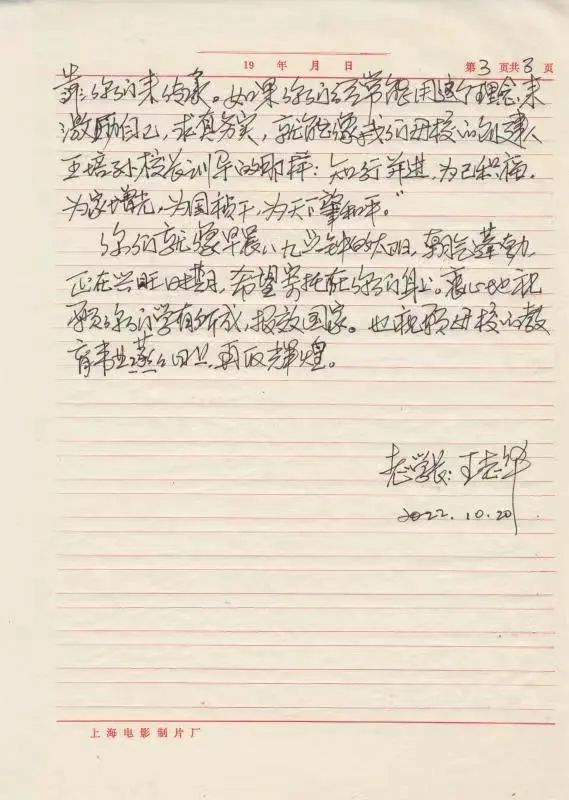 19 年 月 日
第3页共3页
靠你们来传承。如果你们经常能用这个理念来
激励自己，求真务实，就能像我们母校的创建人
王培孙校长训导的那样：知行并进，为己积福，
为家增光，为国桢干，为天下肇和平。"
你们就像早晨八九点钟的太阳，朝气蓬勃，
正在兴旺时期，希望寄托在你们身上。衷心地祝
愿你们学有所成，报效国家。也祝愿母校的教
育事业蒸蒸日上，再放辉煌。
老学长：王志华
2022.10.20
上海电影制片厂